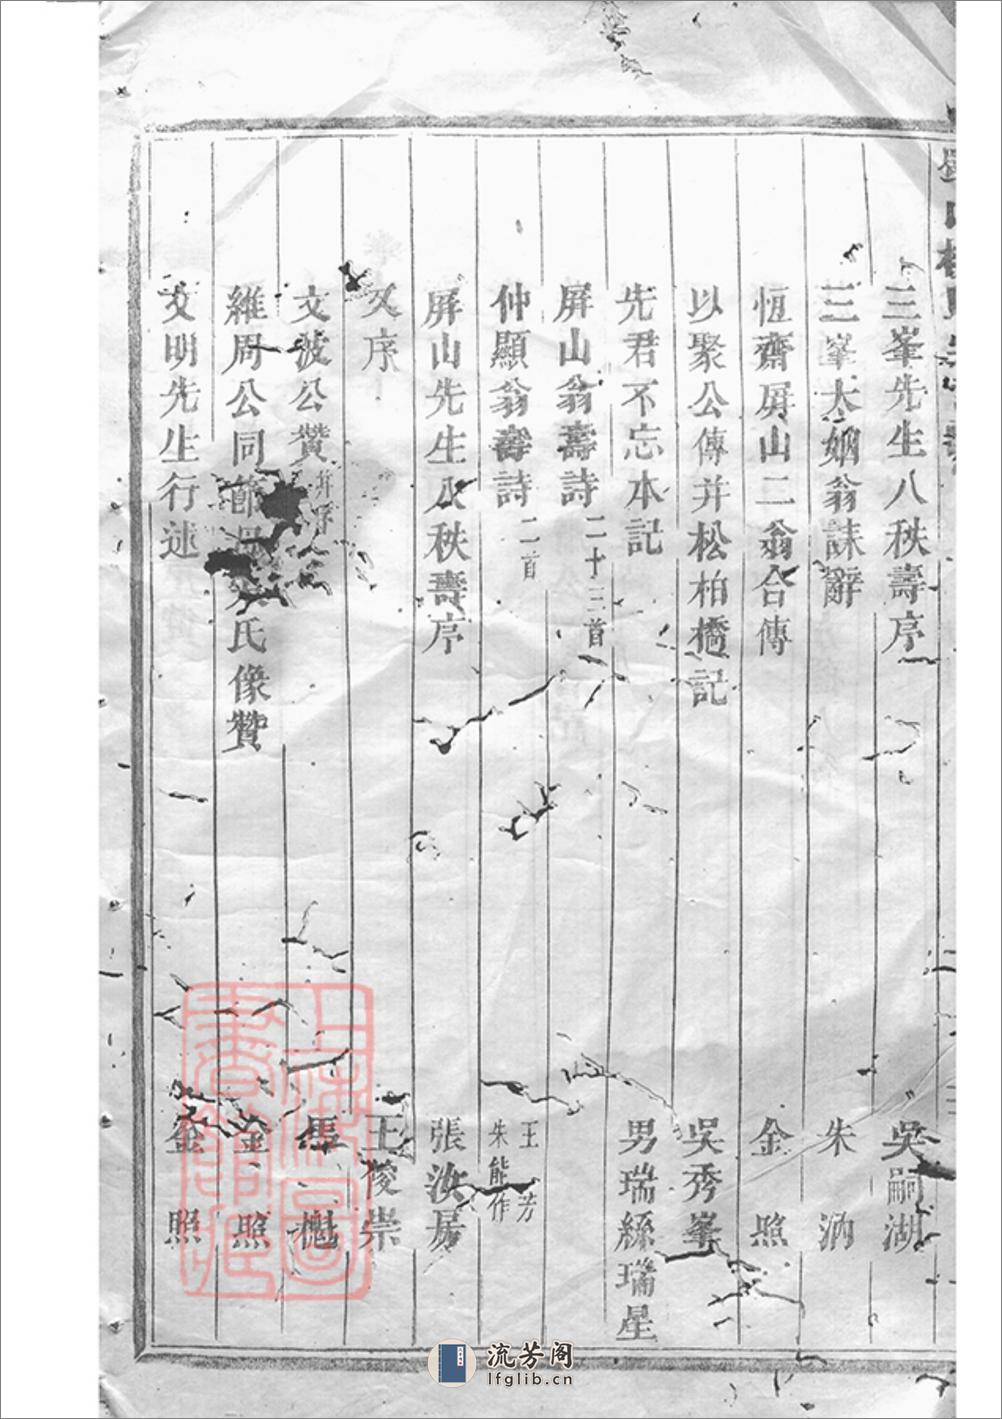 三峯先生八秩壽序 吳嗣湖
三峯大姻翁誄辭 朱㳑
恆齋屏山二翁合傳 金照
以聚公傳并松柏橋記 吳秀峯
先君不忘本記 男瑞絲瑞星
屏山翁壽詩二十三首
仲顯翁壽詩二首 王芳 朱能作
屏山先生八秩壽序 張汝房
又序 王俊崇
文波公贊并序 馬
維周公同節母氏像贊 金照
文明先生行述 金照
上海圖書館藏
流芳阁
lfglib.cn